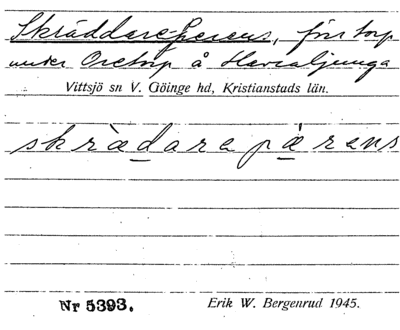 Skräddare-Perens, förr torp
under Oretorp å Herraljunga
Vittsjö sn V. Göinge hd, Kristianstads län.
skrædarapærans
Nr 5393. Erik W. Bergenrud 1945.